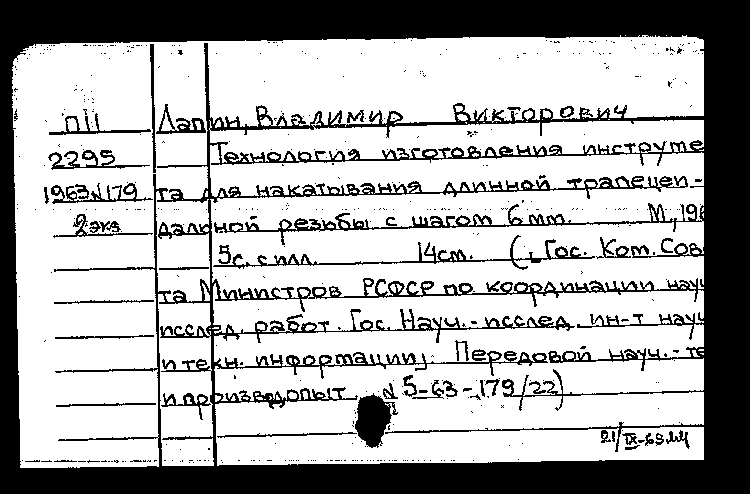 П11 Лапин, Владимир Викторович
2295 Технология изготовления инструме
1963 N179 та для накатывания длинной трапецеи-
2 экз дальной резьбы с шагом 6 мм. М., 196
5с. с илл. 14см. (Гос. Ком. Сов
та Министров РСФСР по координации науч
исслед. работ. Гос. Науч.-исслед. ин-т науч
и техн. информации. Передовой науч.-те
и производ опыт N 5-63-179/22)
21/IX-63